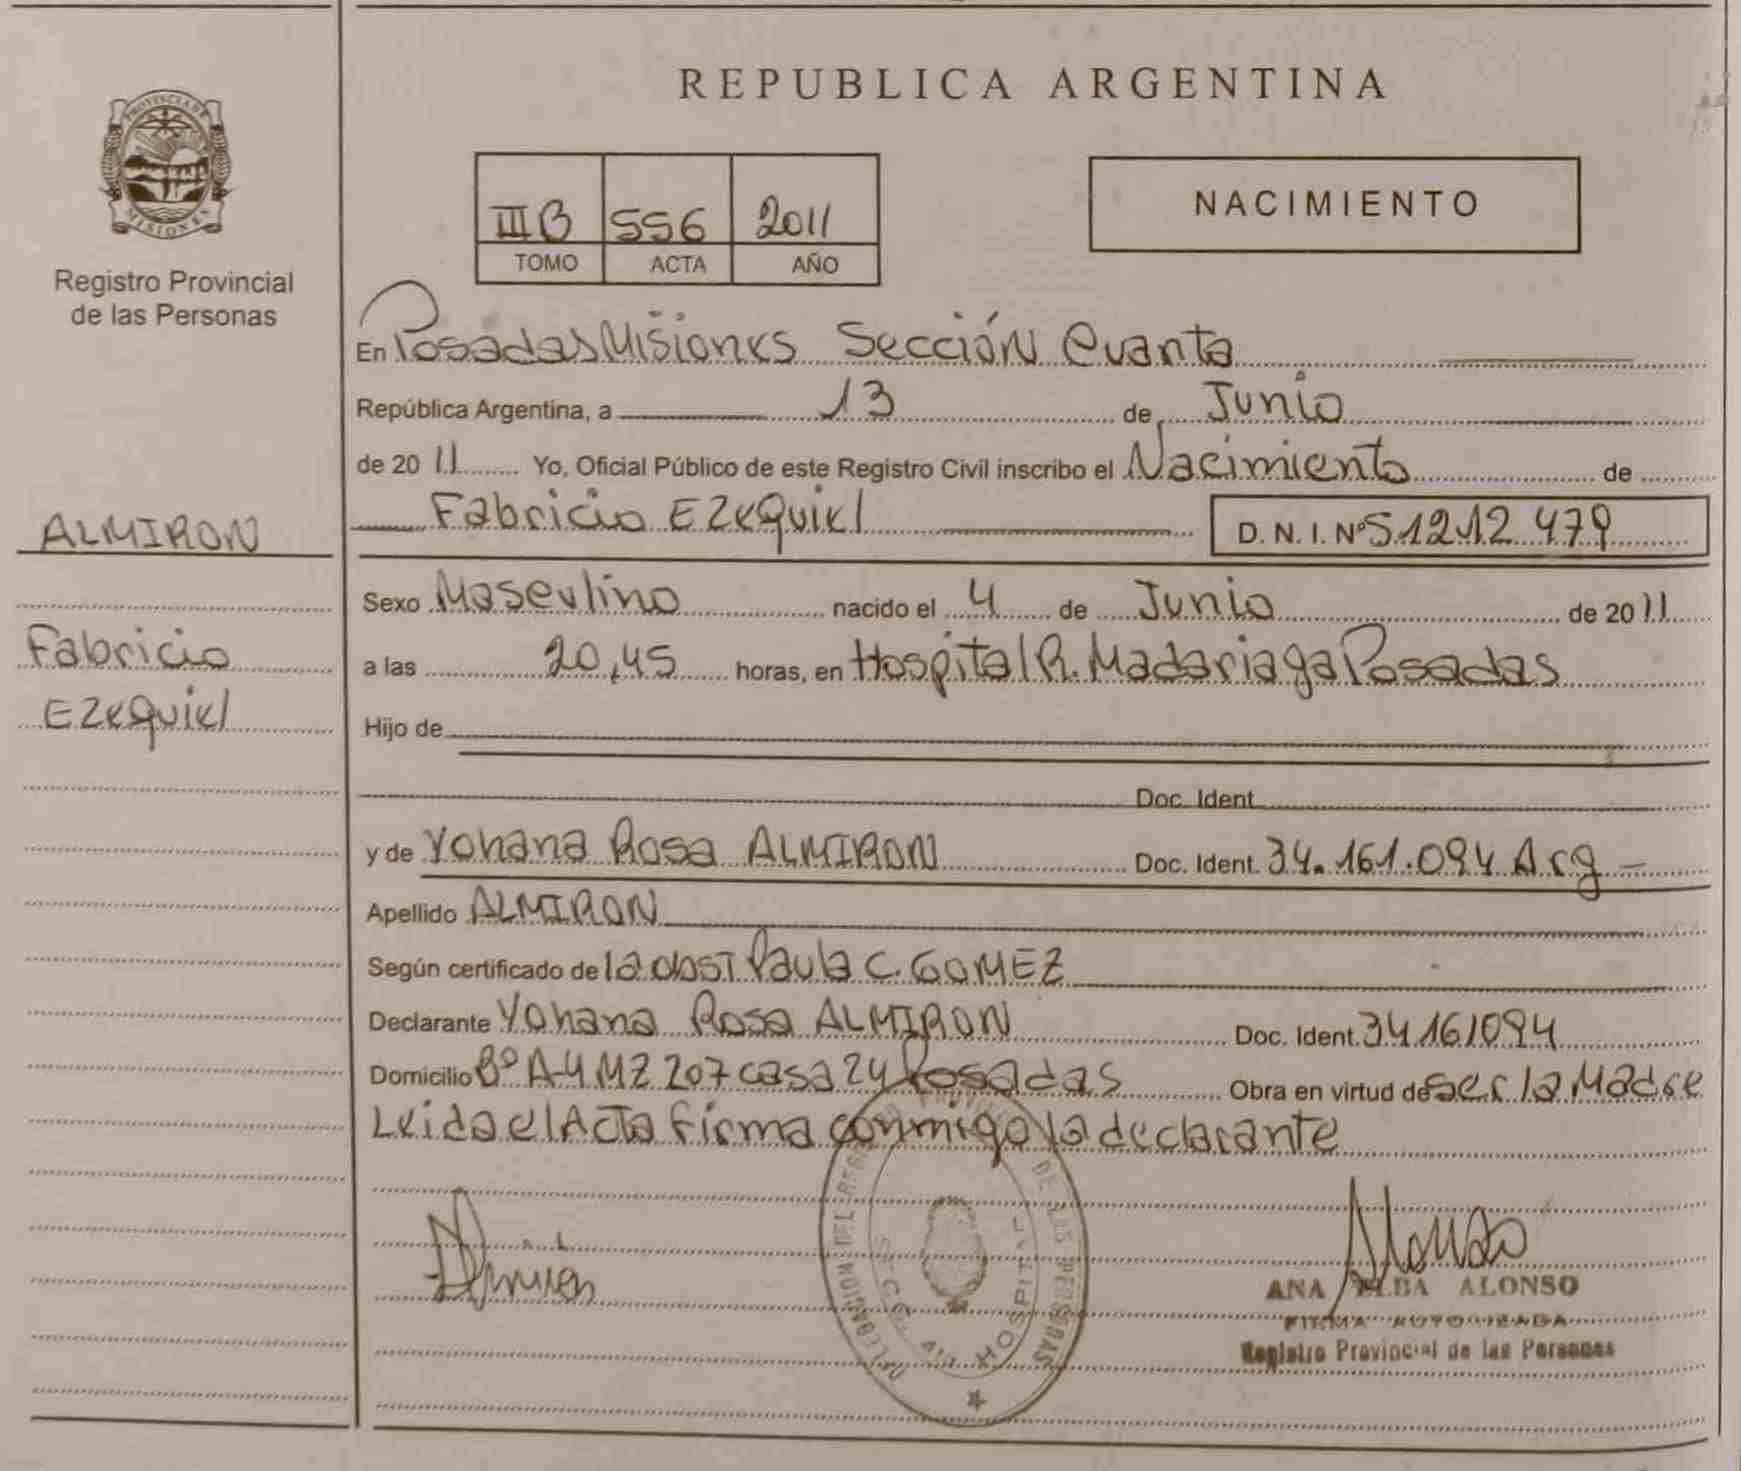 PROVINCIA DE
MISIONES
Registro Provincial
de las Personas
ALMIRON
Fabricio
Ezequiel
REPUBLICA ARGENTINA
IIIB 556 2011
TOMO ACTA AÑO
NACIMIENTO
En Posadas Misiones Sección Cuarta
República Argentina, a 13 de Junio
de 2011 Yo, Oficial Público de este Registro Civil inscribo el Nacimiento de
Fabricio Ezequiel D. N. I. Nº 51212479
Sexo Masculino nacido el 4 de Junio de 2011
a las 20,45 horas, en Hospital R. Madariaga Posadas
Hijo de
Doc. Ident
y de Yohana Rosa ALMIRON Doc. Ident. 34.161.094 Arg
Apellido ALMIRON
Según certificado de la obst Paula C. GOMEZ
Declarante Yohana Rosa ALMIRON Doc. Ident. 34161094
Domicilio Bº A-4 MZ 207 casa 24 Posadas Obra en virtud de ser la Madre
Leida el Acta firma conmigo la declarante
DE LAS PERSONAS
HOSPITAL
ANA ALBA ALONSO
FIRMA AUTORIZADA
Registro Provincial de las Personas